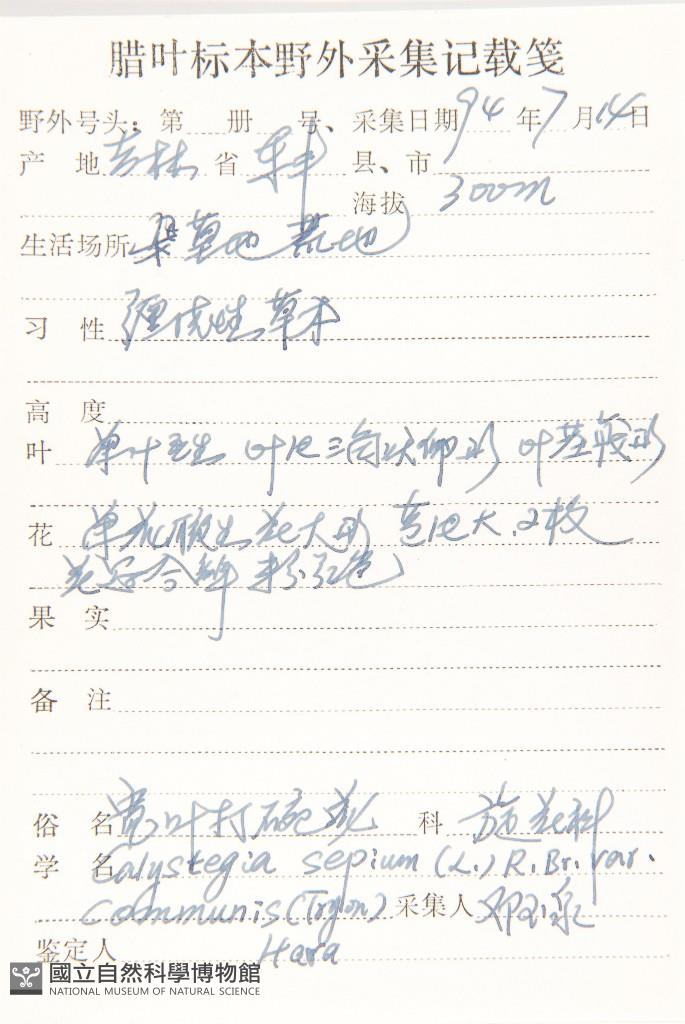 腊叶标本野外采集记载笺
野外号头：第 册 号、采集日期 94 年 7 月 14 日
产 地 吉林 省 东丰 县、市
海拔 300m
生活场所 草地 荒地
习 性 缠绕性草本
高 度
叶 单叶互生 叶 三角状卵形 叶基戟形
花 单花腋生 花大形 苞片大、2枚
花冠合瓣 粉红色
果 实
备 注
俗 名 宽叶打碗花 科 旋花科
学 名 Calystegia sepium (L.) R. Br. var.
communis (Tryon) 采集人
鉴定人 Hara
國立自然科學博物館
NATIONAL MUSEUM OF NATURAL SCIENCE